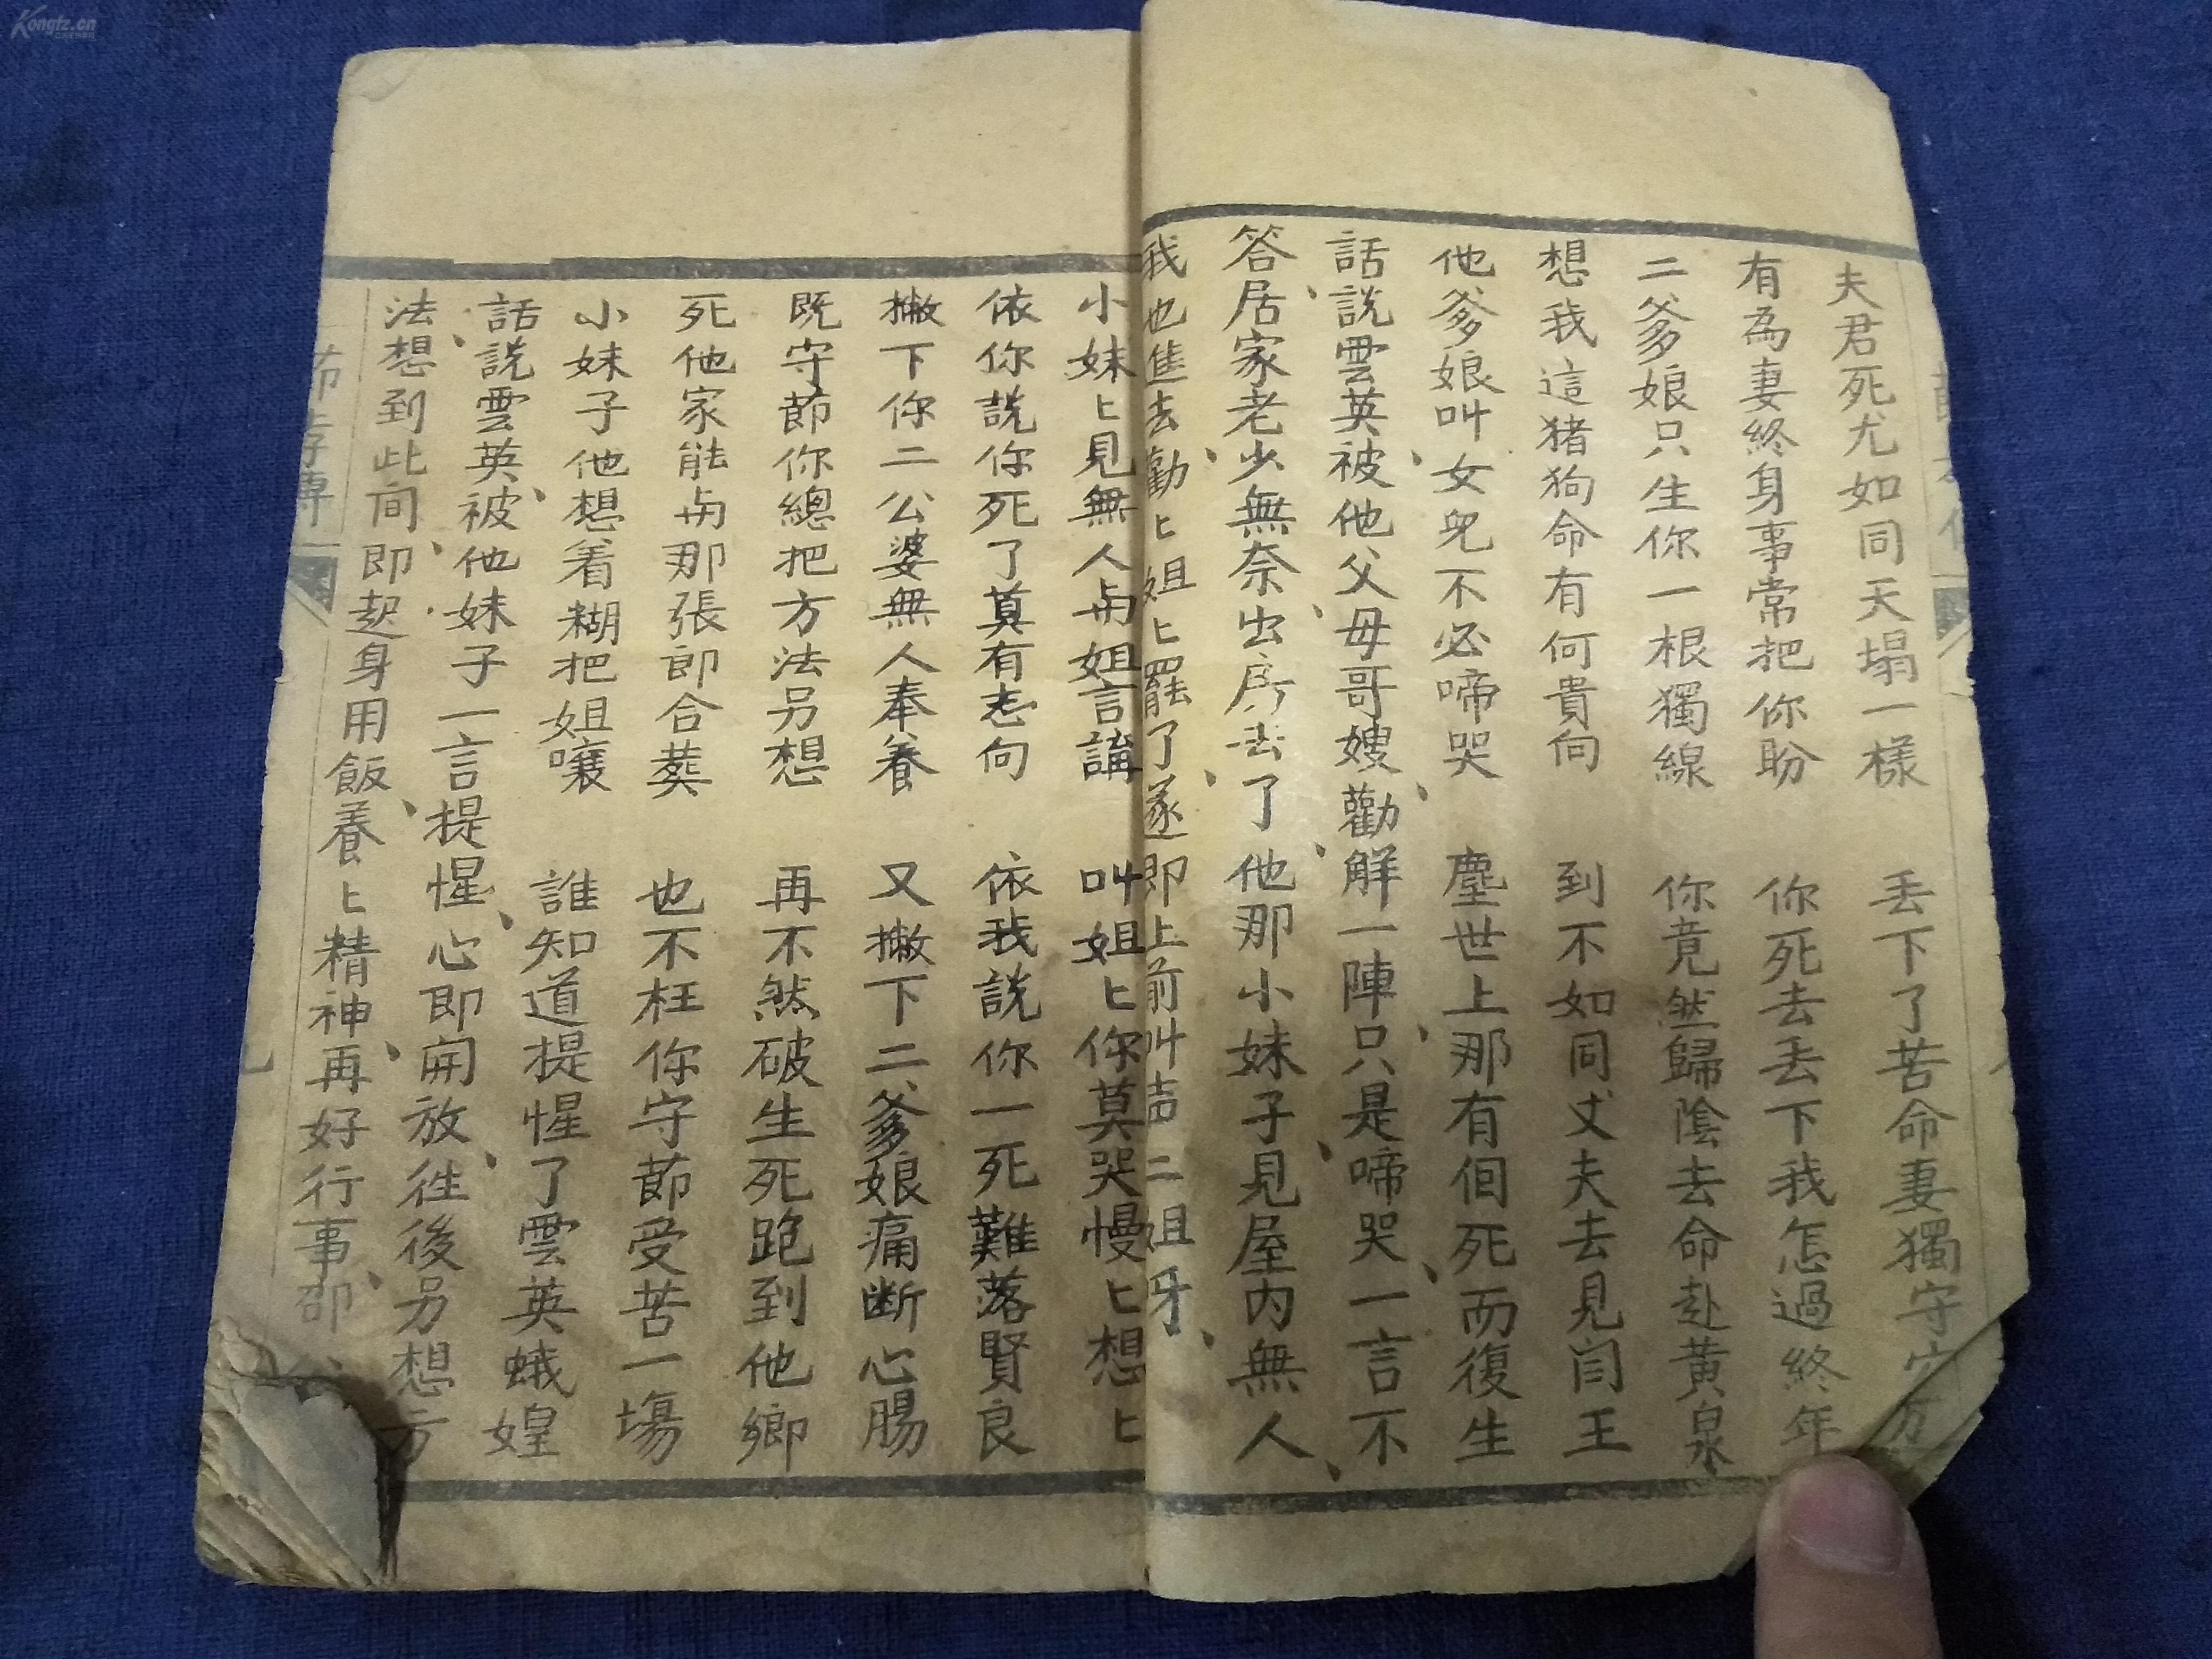 夫君死尤如同天塌一樣 丢下了苦命妻獨守空房
有為妻終身事常把你盼 你死去丢下我怎過終年
二爹娘只生你一根獨線 你竟然歸陰去命赴黃泉
想我這猪狗命有何貴向 到不如同丈夫去見闫王
他爹娘叫女兒不必啼哭 塵世上那有佪死而復生
話説雲英被他父母哥嫂勸解一陣只是啼哭一言不
答居家老少無奈出房去了他那小妹子見屋内無人
我也進去勸ヒ姐ヒ罷了遂即上前叫声二姐牙
小妹ヒ見無人与姐言講 叫姐ヒ你莫哭慢ヒ想ヒ
依你説你死了莫有志向 依我説你一死難落賢良
撇下你二公婆無人奉養 又撇下二爹娘痛断心腸
既守節你總把方法另想 再不然破生死跑到他鄉
死他家能与那張郎合葬 也不枉你守節受苦一場
小妹子他想着糊把姐嚷 誰知道提惺了雲英娥媓
話説雲英被他妹子一言提惺心即開放徃後另想方
法想到此間即起身用飯養ヒ精神再好行事卲
節孝傳
Kongfz.cn